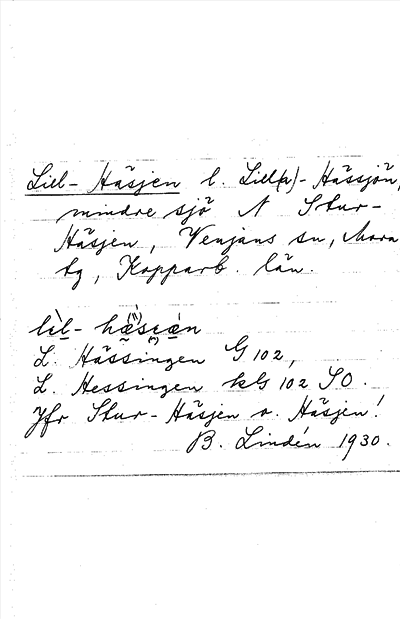 Lill-Häsjen l. Lill(a)-Hässjön,
mindre sjö N Stur-
Häsjen, Venjans sn, Mora
tg, Kopparb. län.
L. Hässingen G 102,
L. Hessingen kG 102 SO.
Jfr Stur-Häsjen o. Häsjen!
B. Lindén 1930.